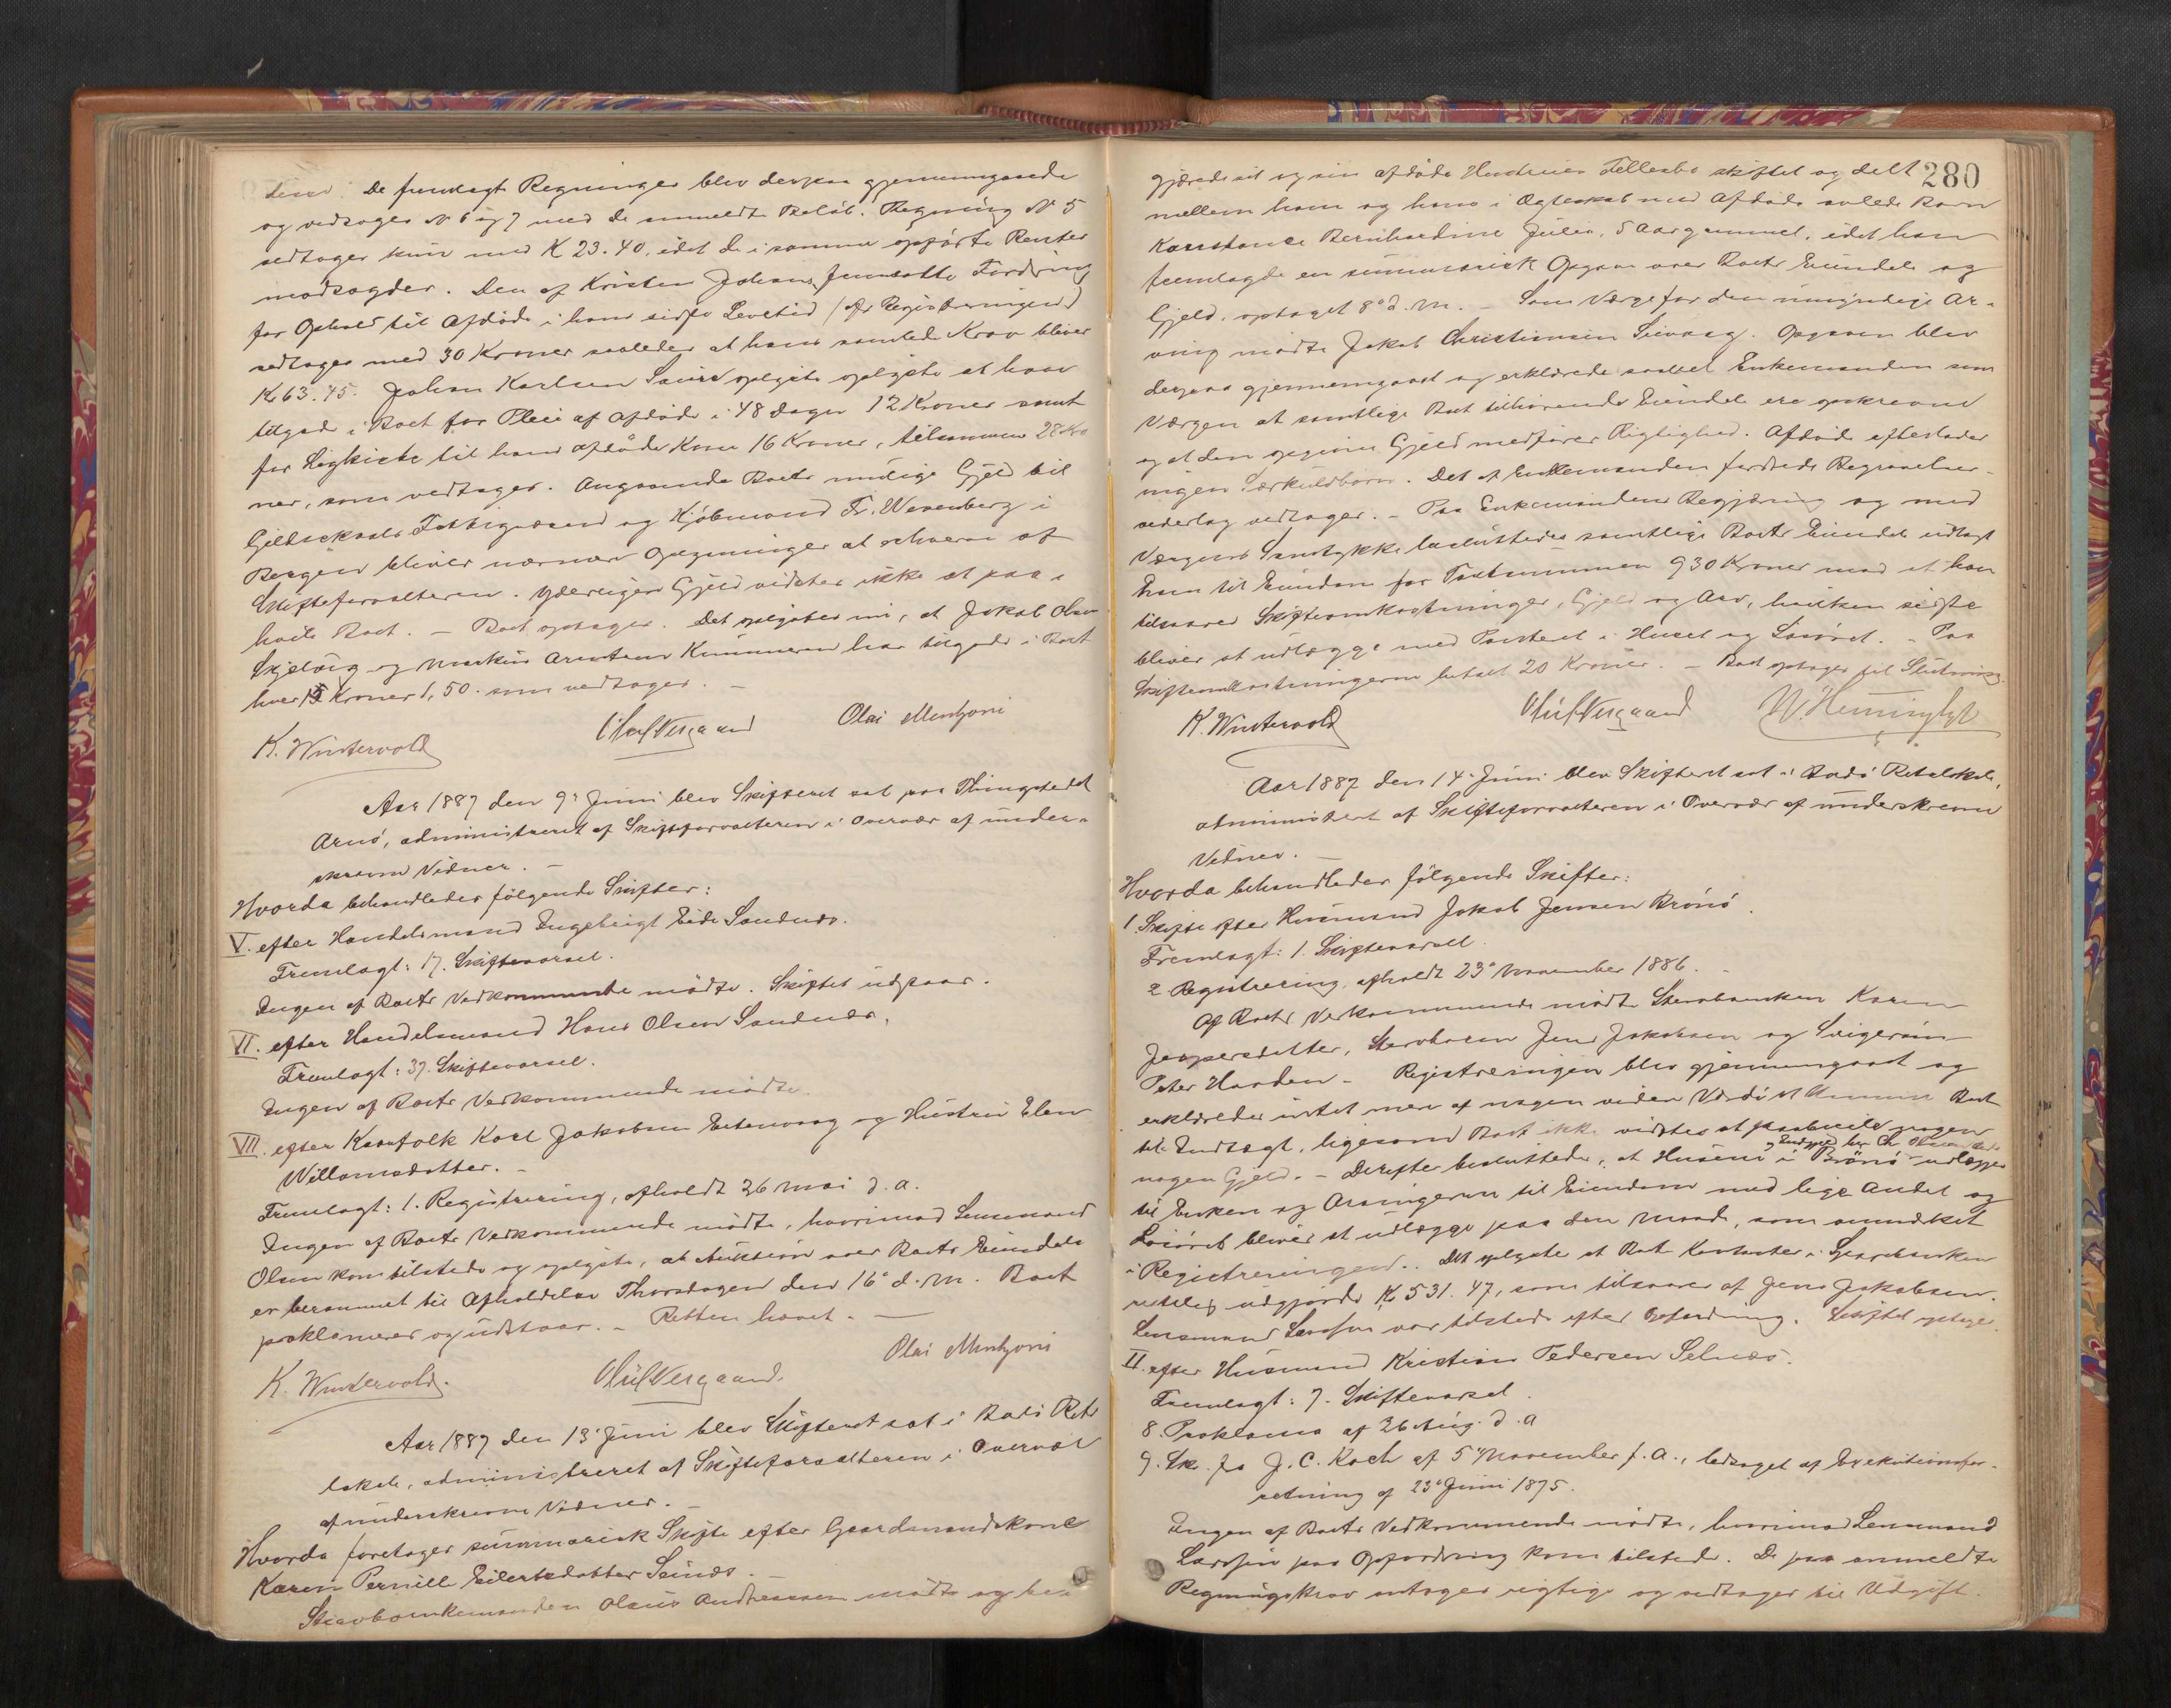 De fremlagte Regninger blev derpaa gjennemgaaede
og vedtoges N 6 og 7 med de anmeldte Beløb. Regning N 5
vedtoges kun med K 23.40, idet de i samme opførte Renter
modsagdes. Den af Kristen Johans. fremsatte Fordring
for Ophold til Afdøde i hans sidste Levetid (ifr Registreringen)
vedtoges med 30 Kroner saaledes at hans samlede Krav bliver
K 63.45. Johan Karlsen opgiste opgiste at have
tilgode i Boet for Pleie af Afdøde i 48 dager 12 Kroner samt
for Ligkiste til hans afdøde Kone 16 Kroner, tilsammen 28 Kro
ner, som vedtoges. Angaaende Boets mulige Gjeld til
Gildeskaals Fattigvæsen og Kjøbmand Fr. Wesenberg i
Bergen bliver nærmere Opgjøringer at erhverve af
Skifteforvalteren. Yderligere Gjeld vidstes ikke at paa-
hvile Boet. — Boet optages. Det oplystes nu, at Jakob Olsen
og Markus Arntsen har tilgode i Boet
hver Kroner 1,50. som vedtoges. —
K. Wintervold Oluf Vesgaard Olai Mentzoni
Aar 1887 den 9de Juni blev Skifteret sat paa Thingstedet
Arnø, administreret af Skifteforvalteren i Overvær af under-
skrevne Vidner. —
Hvorda behandledes følgende Skifter:
V. efter Handelsmand Ingebrigt Eide Sandnæs.
Fremlagt: 17. Skiftevarsel.
Ingen af Boets Vedkommende mødte. Skiftet udstaar.
VI. efter Handelsmand Hans Olsen Sandnæs.
Fremlagt: 37. Skiftevarsel.
Ingen af Boets Vedkommende mødte.
VII. efter Kaarfolk Karl Jakobsen og Hustru Elen
Willomsdatter. —
Fremlagt: 1. Registrering, afholdt 26 Mai d. a.
Ingen af Boets Vedkommende mødte, hvorimod Lensmand
Olsen kom tilstede og oplyste, at Auktion over Boets Eiendele
er berammet til Afholdelse Thorsdagen den 16de d. M. Boet
proklameres og udstaar. — Retten hævet. —
K. Wintervold. Oluf Vesgaard. Olai Mentzoni
Aar 1887 den 13de Juni blev Skifteret sat i Bodø Rets
lokale, administreret af Skifteforvalteren i Overvær
af underskrevne Vidner. —
Hvorda foretoges summarisk Skifte efter Gaardmandskone
Karen Pernille Eilertsdatter Seinæs. —
Stervboenkemanden Olaus Andreassen mødte og be-
280
gjærede sit og sin afdøde Hustrues Fællesbo skiftet og delt
mellem ham og hans i Ægteskab med Afdøde avlede Barn
Konstance Bernhardine Julie, 5 Aar gammel, idet han
fremlagde en summarisk Opgave over Boets Eiendele og
Gjeld, optaget 8de d. M. — Som Værge for den umyndige Ar-
ving mødte Jakob Christiansen. Opgaven blev
derpaa gjennemgaaet og erklærede saavel Enkemanden som
Værgen at samtlige Boet tilhørende Eiendele ere opskrevne
og at den opgivne Gjeld medfører Rigtighed. Afdøde efterlader
ingen Særkuldbarn. Det af Enkemanden fordrede Begravelses-
vederlag vedtoges. — Paa Enkemandens Begjæring og med
Værgens Samtykke besluttedes samtlige Boets Eiendele udlagt
ham til Eiendom for Taxtsummen 930 Kroner mod at han
tilsvarer Skifteomkostninger, Gjeld og Arv, hvilken sidste
bliver at udlægge med Panteret i Huset og Løsøret. — Paa
Skifteomkostningerne betalt 20 Kroner. — Boet optages til Slutning.
K. Wintervold Oluf Vesgaard
Aar 1887 den 14de Juni blev Skifteret sat i Bodø Retslokale,
administreret af Skifteforvalteren i Overvær af underskrevne
Vidner. —
Hvorda behandledes følgende Skifter:
1. Skifte efter Husmand Jakob Jensen Brønø.
Fremlagt: 1. Skiftevarsel.
2. Registrering, afholdt 23de November 1886. —
Af Boets Vedkommende mødte Stervboenken Karen
Jespersdatter, Stervboson Jens Jakobsen og Svigersøn
Peter Hansen. — Registreringen blev gjennemgaaet og
erklæredes intet mere af nogen videre Værdi at kunne Boet
til Indtægt, ligesom Boet ikke vidstes at paahvile nogen
nogen Gjeld. — Derefter besluttedes, at Huset i Brønø udlægges
til Enken og Arvingerne til Eiendom med lige Andel og
Løsøret bliver at udlægge paa den Maade, som anmærket
i Registreringen. Det oplystes at Boets Kontanter i Sparebanken
rettelig udgjorde K 531.47, som tilsvares af Jens Jakobsen.
Lensmand Larssen var tilstede efter Opfordring. Skiftet optages.
II. efter Husmand Kristian Pedersen Selnæs.
Fremlagt: 7. Skiftevarsel.
8. Proklama af 26 Aug. d. a
9. Sk. fra J. C. Koch af 5 November f. A., ledsaget af Exekutionsfor-
retning af 23de Juni 1875.
Ingen af Boets Vedkommende mødte, hvorimod Lensmand
Larssen paa Opfordring kom tilstede. De paa anmeldte
Regningskrav antages rigtige og vedtages til Udgift.